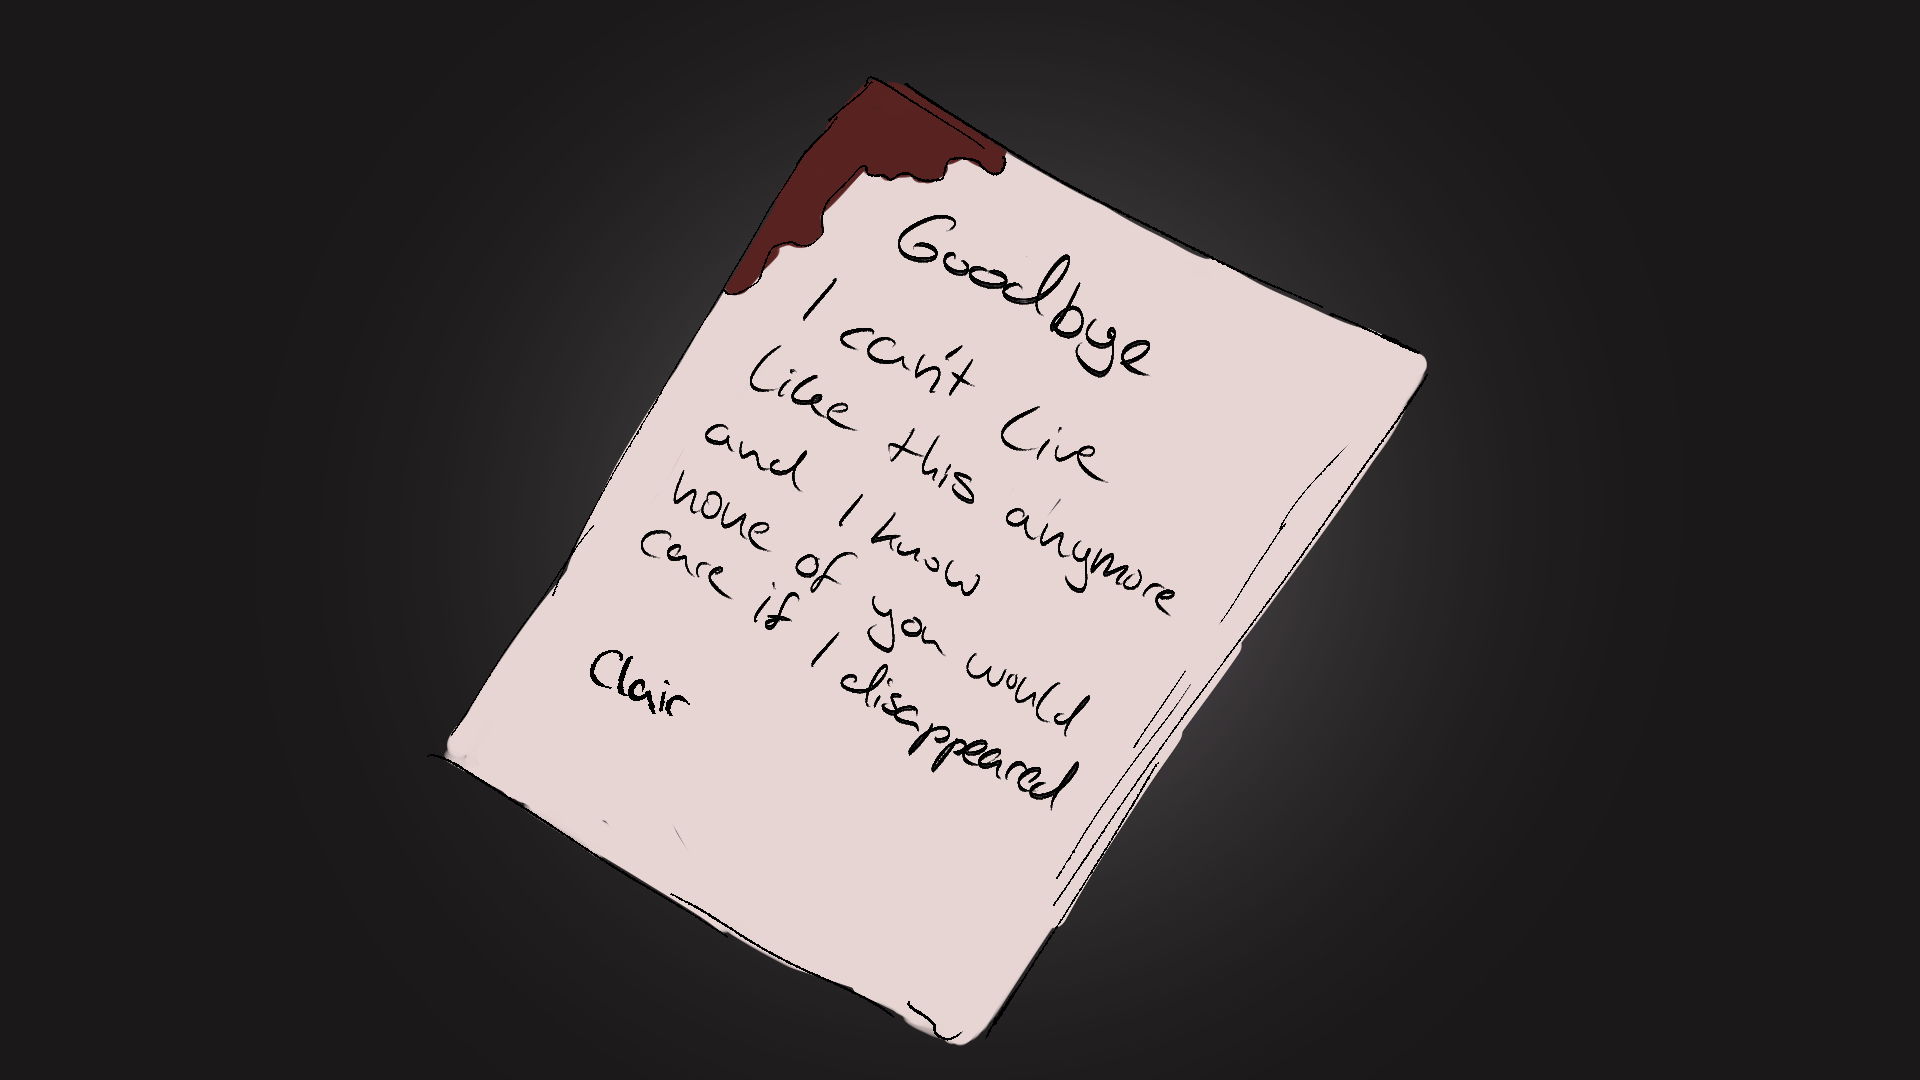 Goodbye
I can't Live
Like this anymore
and I know
none of you would
care if I disappeared
Clair